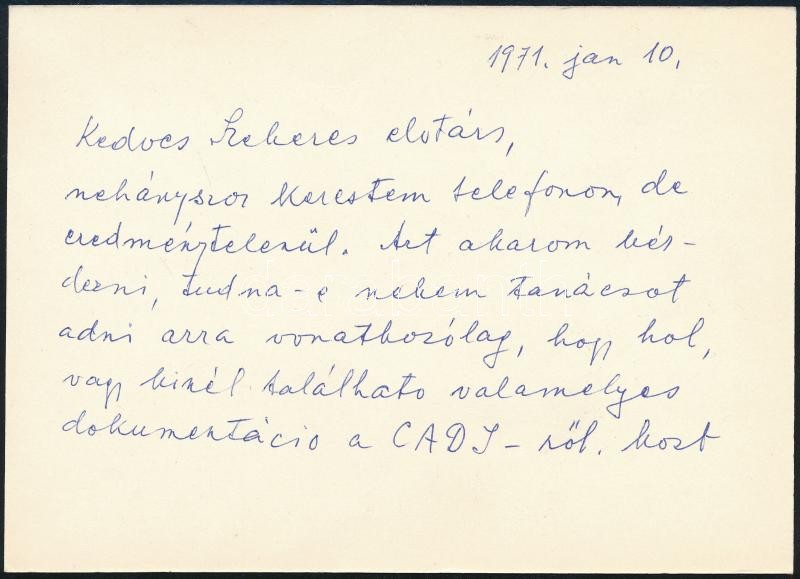 1971. jan 10.
Kedves Szekeres elvtárs,
nehányszor kerestem telefonon, de
eredménytelenül. Azt akarom kér-
dezni, tudna-e nekem tanácsot
adni arra vonatkozólag, hogy hol,
vagy kinél található valamelyes
dokumentácio a CADI-ról.